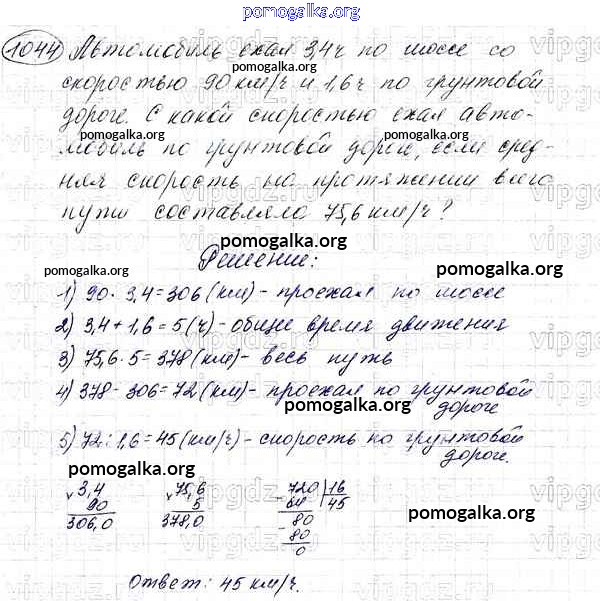 pomogalka.org
1044 Автомобиль ехал 3,4ч по шоссе со
скоростью 90 км/ч и 1,6ч по грунтовой
дороге. С какой скоростью ехал авто-
pomogalka.org pomogalka.org
мобиль по грунтовой дороге, если сред-
няя скорость на протяжении всего
пути составляла 75,6 км/ч?
pomogalka.org
Решение:
pomogalka.org pomogalka.org
1) 90 · 3,4 = 306 (км) - проехал по шоссе
2) 3,4 + 1,6 = 5 (ч) - общие время движения
3) 75,6 · 5 = 378 (км) - весь путь
4) 378 - 306 = 72 (км) - проехал по грунтовой
дороге
pomogalka.org
5) 72 : 1,6 = 45 (км/ч) - скорость по грунтовой
дороге.
pomogalka.org pomogalka.org
× 3,4 × 75,6 - 720 | 16
90 5 64 45
306,0 378,0 - 80
80
0
pomogalka.org
Ответ: 45 км/ч.